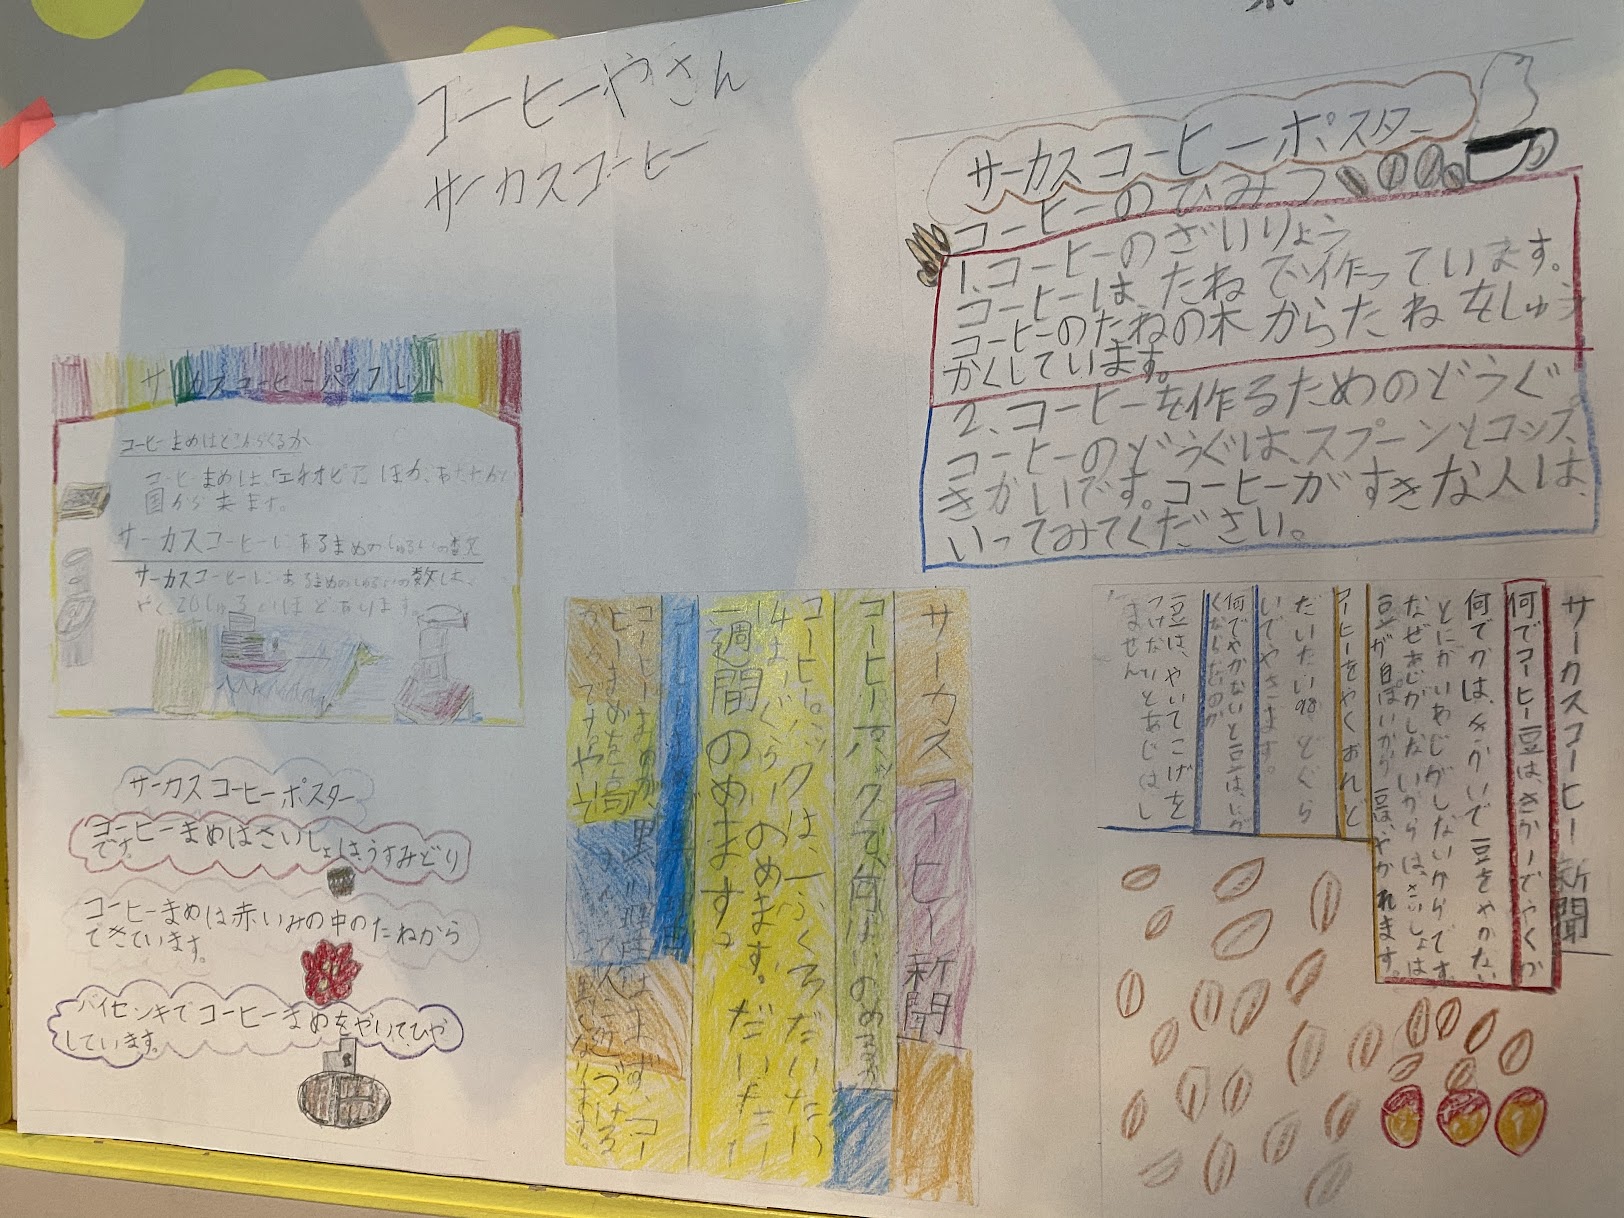 コーヒーやさん
サーカスコーヒー
サーカスコーヒーパンフレット
コーヒーまめはどこからくるか
コーヒーまめは、「エチオピア」ほか、あたたかい
国から来ます。
サーカスコーヒーにあるまめのしゅるいの数
サーカスコーヒーにあるまめのしゅるいの数は、
やく20しゅるいほどあります。
サーカスコーヒーポスター
コーヒーまめはさいしょはうすみどり
です。
コーヒーまめは赤いみの中のたねから
できています。
バイセンキでコーヒーまめをやいて、ひや
しています。
サーカスコーヒーポスター
コーヒーのひみつ
1.コーヒーのざいりょう
コーヒーは、たねで作っています。
コーヒーのたねの木からたねをしゅう
かくしています。
2、コーヒーを作るためのどうぐ
コーヒーのどうぐは、スプーンとコップ、
きかいです。コーヒーがすきな人は、
いってみてください。
サーカスコーヒー新聞
コーヒーパックで何はいのめるか
コーヒーパックは、一ふくろだいたい
14はいぐらいのめます。だいたい
一週間のめます?
コーヒー
理由はまず、コー
ヒーまめを高
サーカスコーヒー新聞
何でコーヒー豆はきかいでやくか
何でかは、きかいで豆をやかない
とにがいあじがしないからです。
なぜあじがしないからは、さいしょは
豆が白っぽいから豆は、やかれます。
コーヒーをやくおんど
だいたい98どぐら
いでやきます。
何でやかないと豆は、にが
くならないのか
豆は、やいてこげを
つけないとあじはし
ません